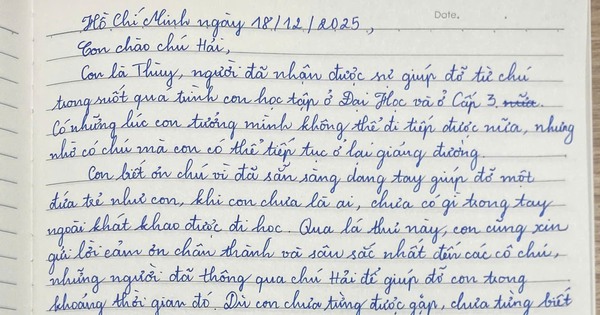 Date.
Hồ Chí Minh ngày 18/12/2025,
Con chào chú Hải,
Con là Thùy, người đã nhận được sự giúp đỡ từ chú
trong suốt quá trình con học tập ở Đại Học và ở Cấp 3 nữa.
Có những lúc con tưởng mình không thể đi tiếp được nữa, nhưng
nhờ có chú mà con có thể tiếp tục ở lại giảng đường.
Con biết ơn chú vì đã sẵn sàng dang tay giúp đỡ một
đứa trẻ như con, khi con chưa là ai, chưa có gì trong tay
ngoài khát khao được đi học. Qua lá thư này, con cũng xin
gửi lời cảm ơn chân thành và sâu sắc nhất đến các cô chú,
những người đã thông qua chú Hải để giúp đỡ con trong
khoảng thời gian đó. Dù con chưa từng được gặp, chưa từng biết